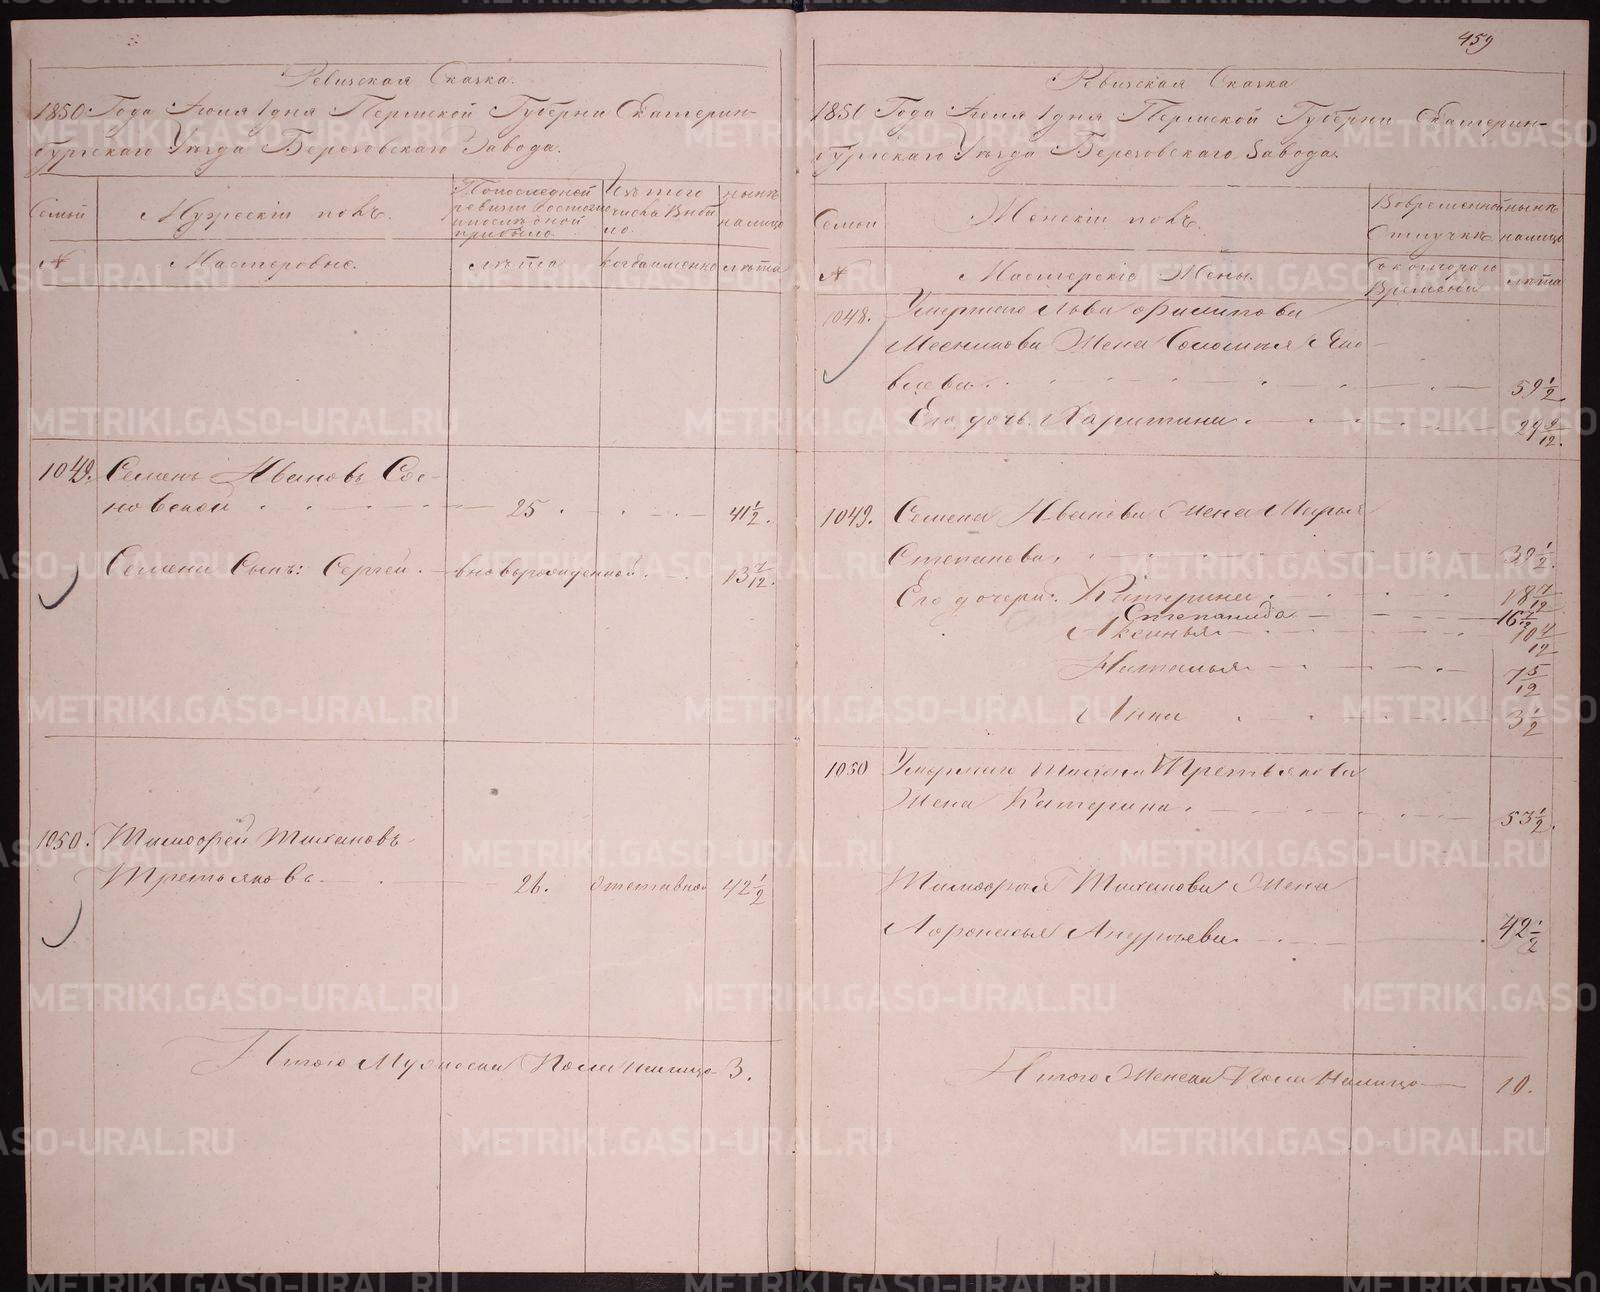 459
Ревизская Сказка.
1850 Года Июня 1 дня Пермской Губерни Екатерин-
бургскаго Уезда Березовскаго Завода.
Семьи
Мужескiй полъ.
По последней ревизи состояло и после оной прибыло
Изъ того числа выбыло.
ныне налицо
№
Мастеровые.
лета
когда именно
лета
1049. Семенъ Ивановъ Сос-
новской 25. 41 1/2.
Семена Сынъ: Сергей. вновьрожденной. 13 7/12.
1050. Тимофей Тихановъ
Третьяковъ. 26. отставной 42 1/2
Итого Мужеска Пола налицо 3.
Ревизская Сказка
1850 Года Июня 1 дня Пермской Губерни Екатерин-
бургскаго Уезда Березовскаго Завода.
Семьи
Женскiй полъ.
Во временной Отлучке
ныне налицо
№
Мастерскiе Жены.
Съ котораго Времени
лета
1048. Умершаго Лова Филипова
Жена Соломея Яко-
влева. 59 1/2.
Его дочь. Харитина. 29 9/12.
1049. Семена Иванова Жена Марья
Степанова. 39 1/2.
Его дочери: Катерина. 18 7/12
Степанида 16 1/2
Аксинья 10 4/12
Наталья 7 5/12
Анна 3 1/2
1050 Умершаго Тихана Третьякова
Жена Катерина. 53 1/2.
Тимофея Тиханова Жена
Афонасья Андреева. 42 1/2
Итого Женска Пола Налицо 10.
METRIKI.GASO-URAL.RU